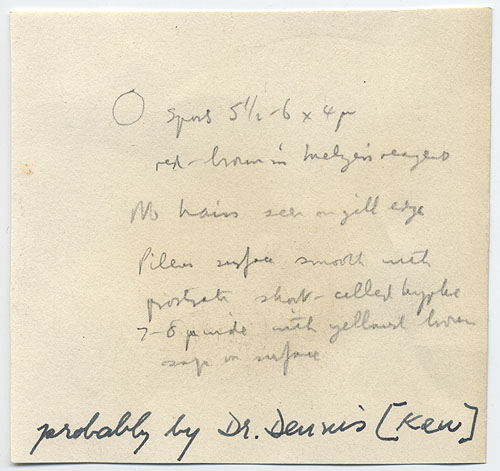 Spores 5½-6 x 4 µ
red-brown in Melzer's reagent
No hairs seen on gill edge
Pileus surface smooth with
prostrate short-celled hyphae
7-8 µ wide with yellowish brown
sap on surface
probably by Dr. Dennis [Kew]